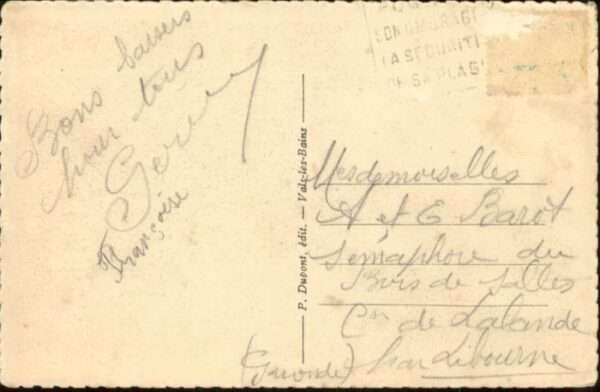 Bons baisers
pour tous
Françoise
SON OMBRAGE
LA SÉCURITÉ
DE SA PLAG
P. Dupont, édit. — Vals-les-Bains
Mesdemoiselles
A et E Barot
Sémaphore du
Bois de Salles
Cne de Lalande
par Libourne
(Gironde)